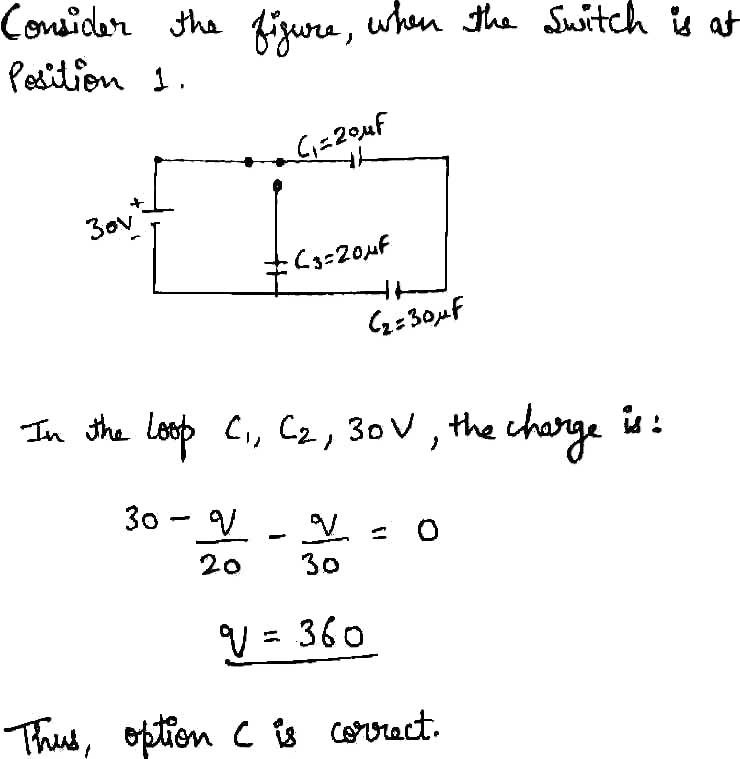 Consider the figure, when the Switch is at
Position 1.
C₁=20μF
+
30V
-
C₃=20μF
C₂=30μF
In the loop C₁, C₂, 30V, the charge is:
30 - q/20 - q/30 = 0
q = 360
Thus, option C is correct.